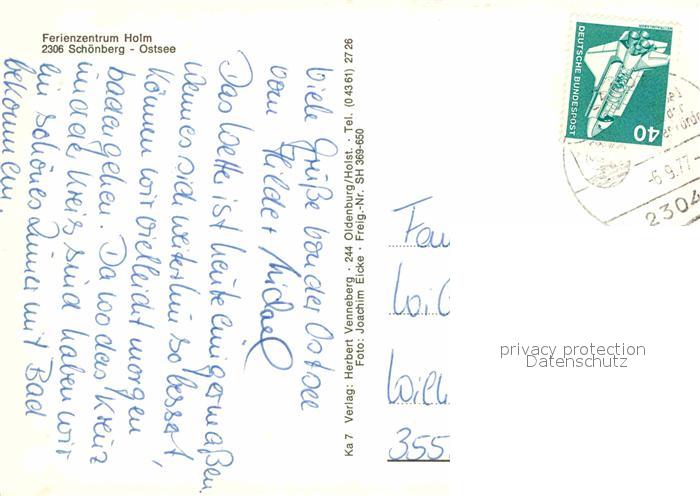 Ferienzentrum Holm
2306 Schönberg - Ostsee
Viele Grüße von der Ostsee
von Hilde + Michael
Das Wetter ist heute einigermaßen.
Wenn es sich weiterhin so bessert,
können wir vielleicht morgen
baden gehen. Da wo das Kreuz
und der Kreis sind haben wir
ein schönes Zimmer mit Bad
bekommen.
Ka 7 Verlag: Herbert Venneberg · 244 Oldenburg/Holst. · Tel. (0 43 61) 27 26
Foto: Joachim Eicke · Freig.-Nr. SH 369-650
DEUTSCHE BUNDESPOST
40
-6.9.77
2304
Fam
355
privacy protection
Datenschutz